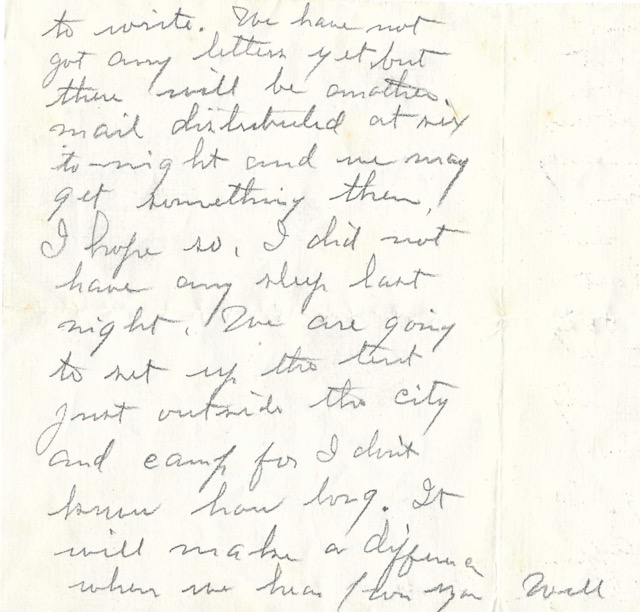 to write. We have not
got any letters yet, but
there will be another
mail distributed at six
to-night and we may
get something then.
I hope so. I did not
have any sleep last
night. We are going
to set up the tent
just outside the city
and camp for I don't
know how long. It
will make a difference
when we hear from you Will